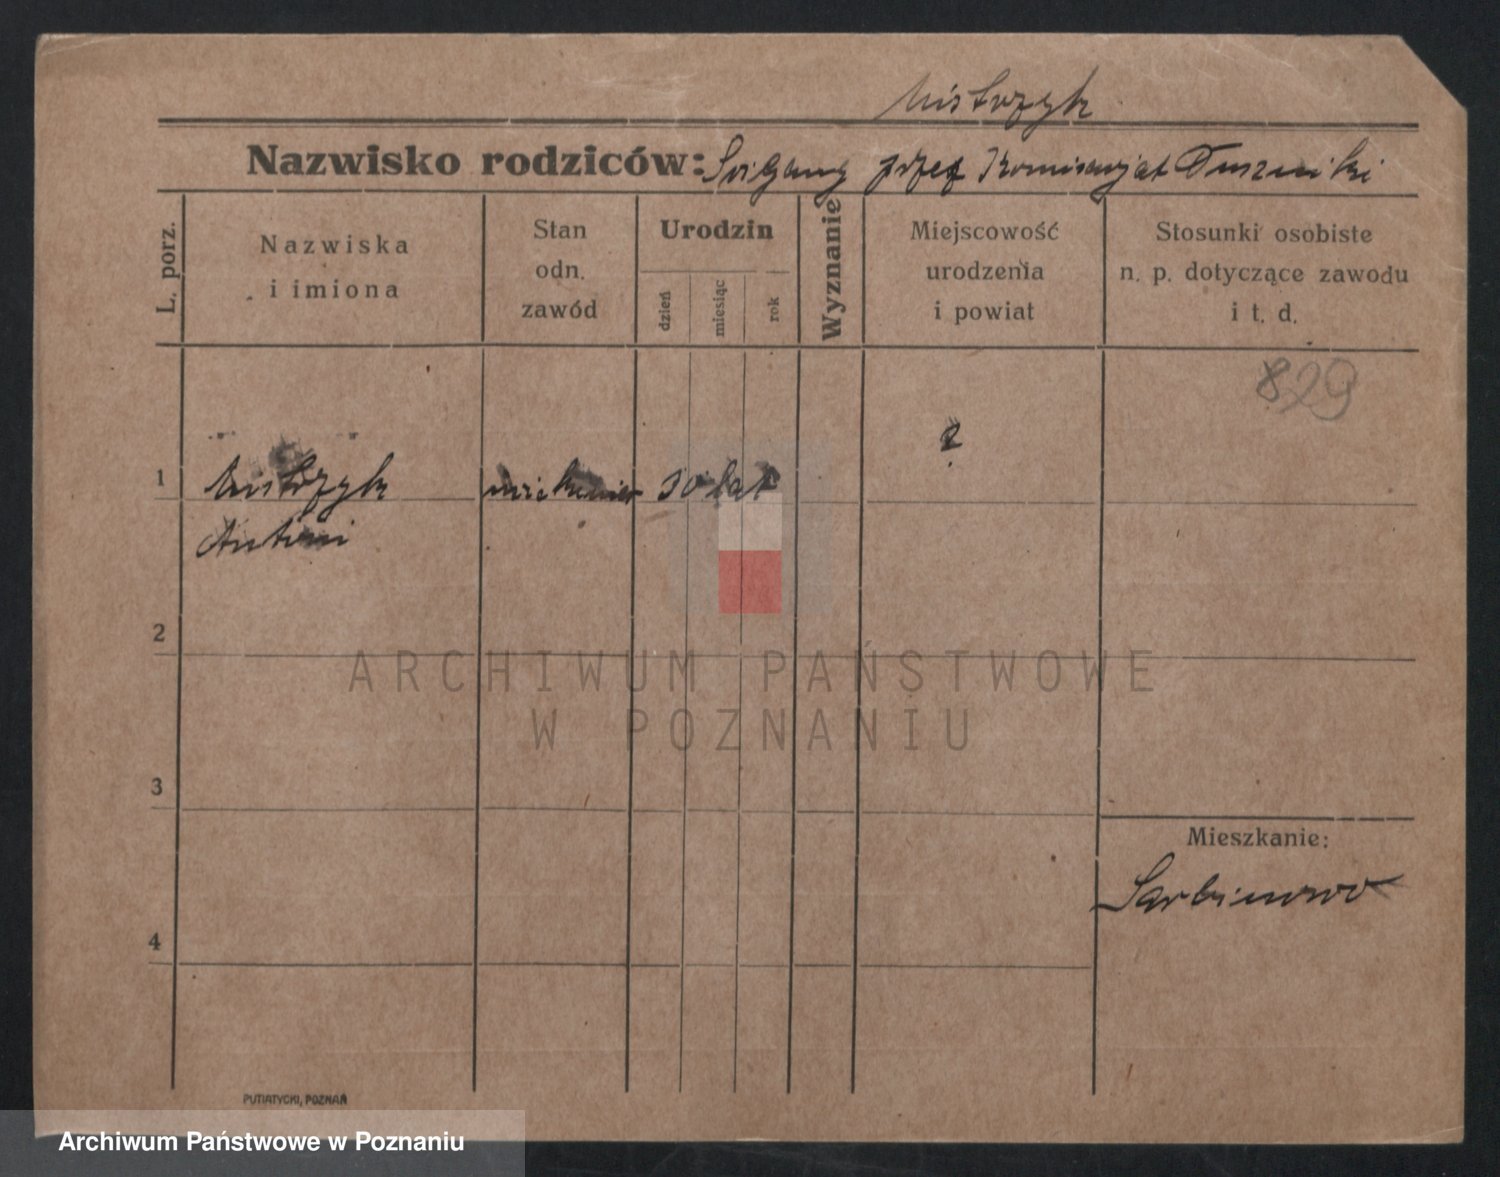 Mistrzyk
Nazwisko rodziców: Ścigany przez Komisarjat Duszniki
L. porz.
Nazwiska
i imiona
Stan
odn.
zawód
Urodzin
dzień
miesiąc
rok
Wyznanie
Miejscowość
urodzenia
i powiat
Stosunki osobiste
n. p. dotyczące zawodu
i t. d.
829
?
1 Mistrzyk 30 lat
Antoni
2
ARCHIWUM PAŃSTWOWE
W POZNANIU
3
Mieszkanie:
Sarbinowo
4
PUTIATYCKI, POZNAŃ
Archiwum Państwowe w Poznaniu